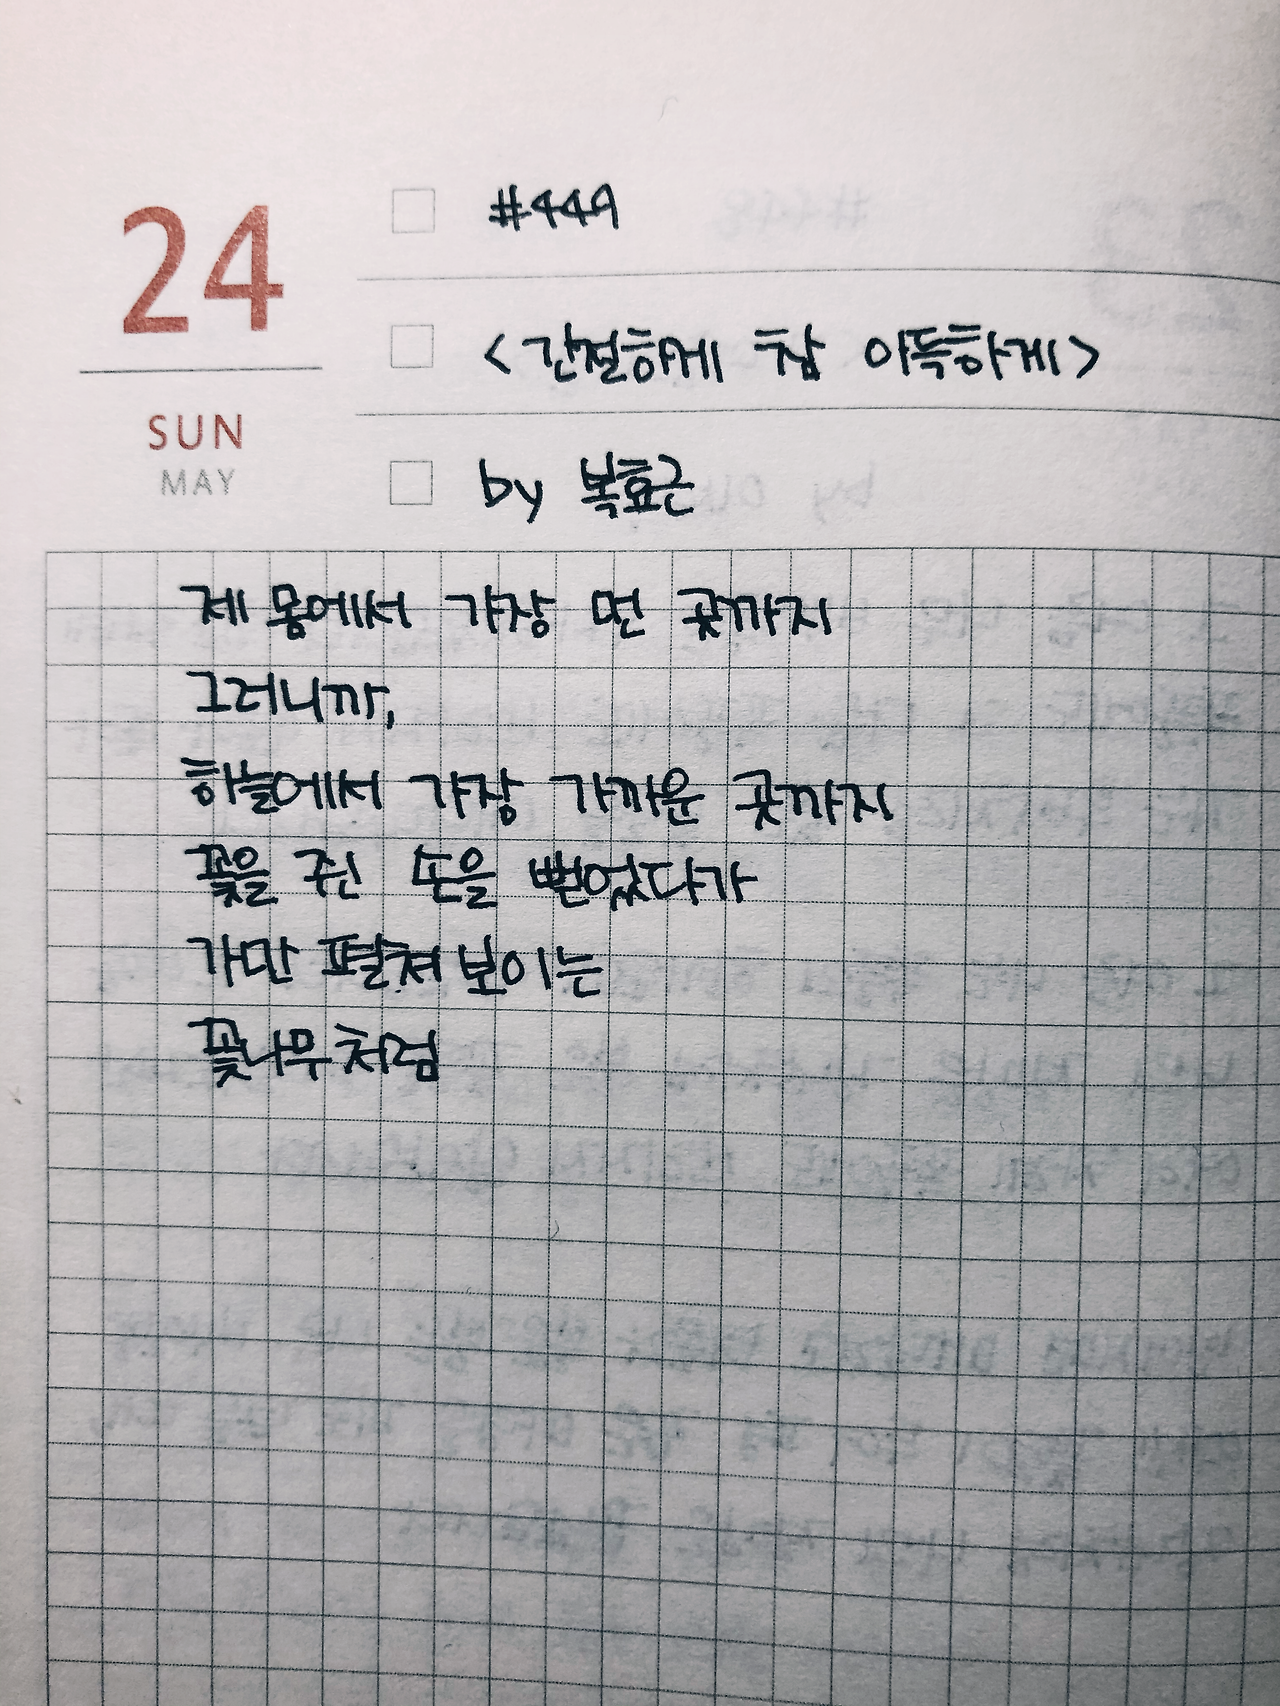 24
SUN
MAY
#449
<간절하게 참 아득하게>
by 복효근
제 몸에서 가장 먼 곳까지
그러니까,
하늘에서 가장 가까운 곳까지
꽃을 쥔 손을 뻗었다가
가만 펼쳐 보이는
꽃나무처럼